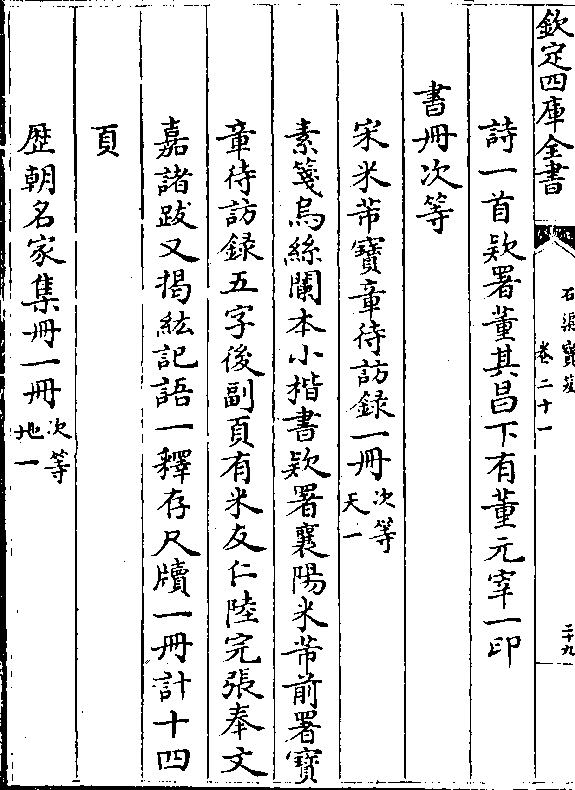 欽定四庫全書
石渠寶笈
卷二十一
二十九
詩一首欵署董其昌下有董元宰一印
書冊次等
宋米芾寶章待訪録一冊次等天一
素箋烏絲闌本小楷書欵署襄陽米芾前署寶
章待訪録五字後副頁有米友仁陸完張奉文
嘉諸跋又揭紘記語一釋存尺牘一冊計十四
頁
歴朝名家集冊一冊次等地一